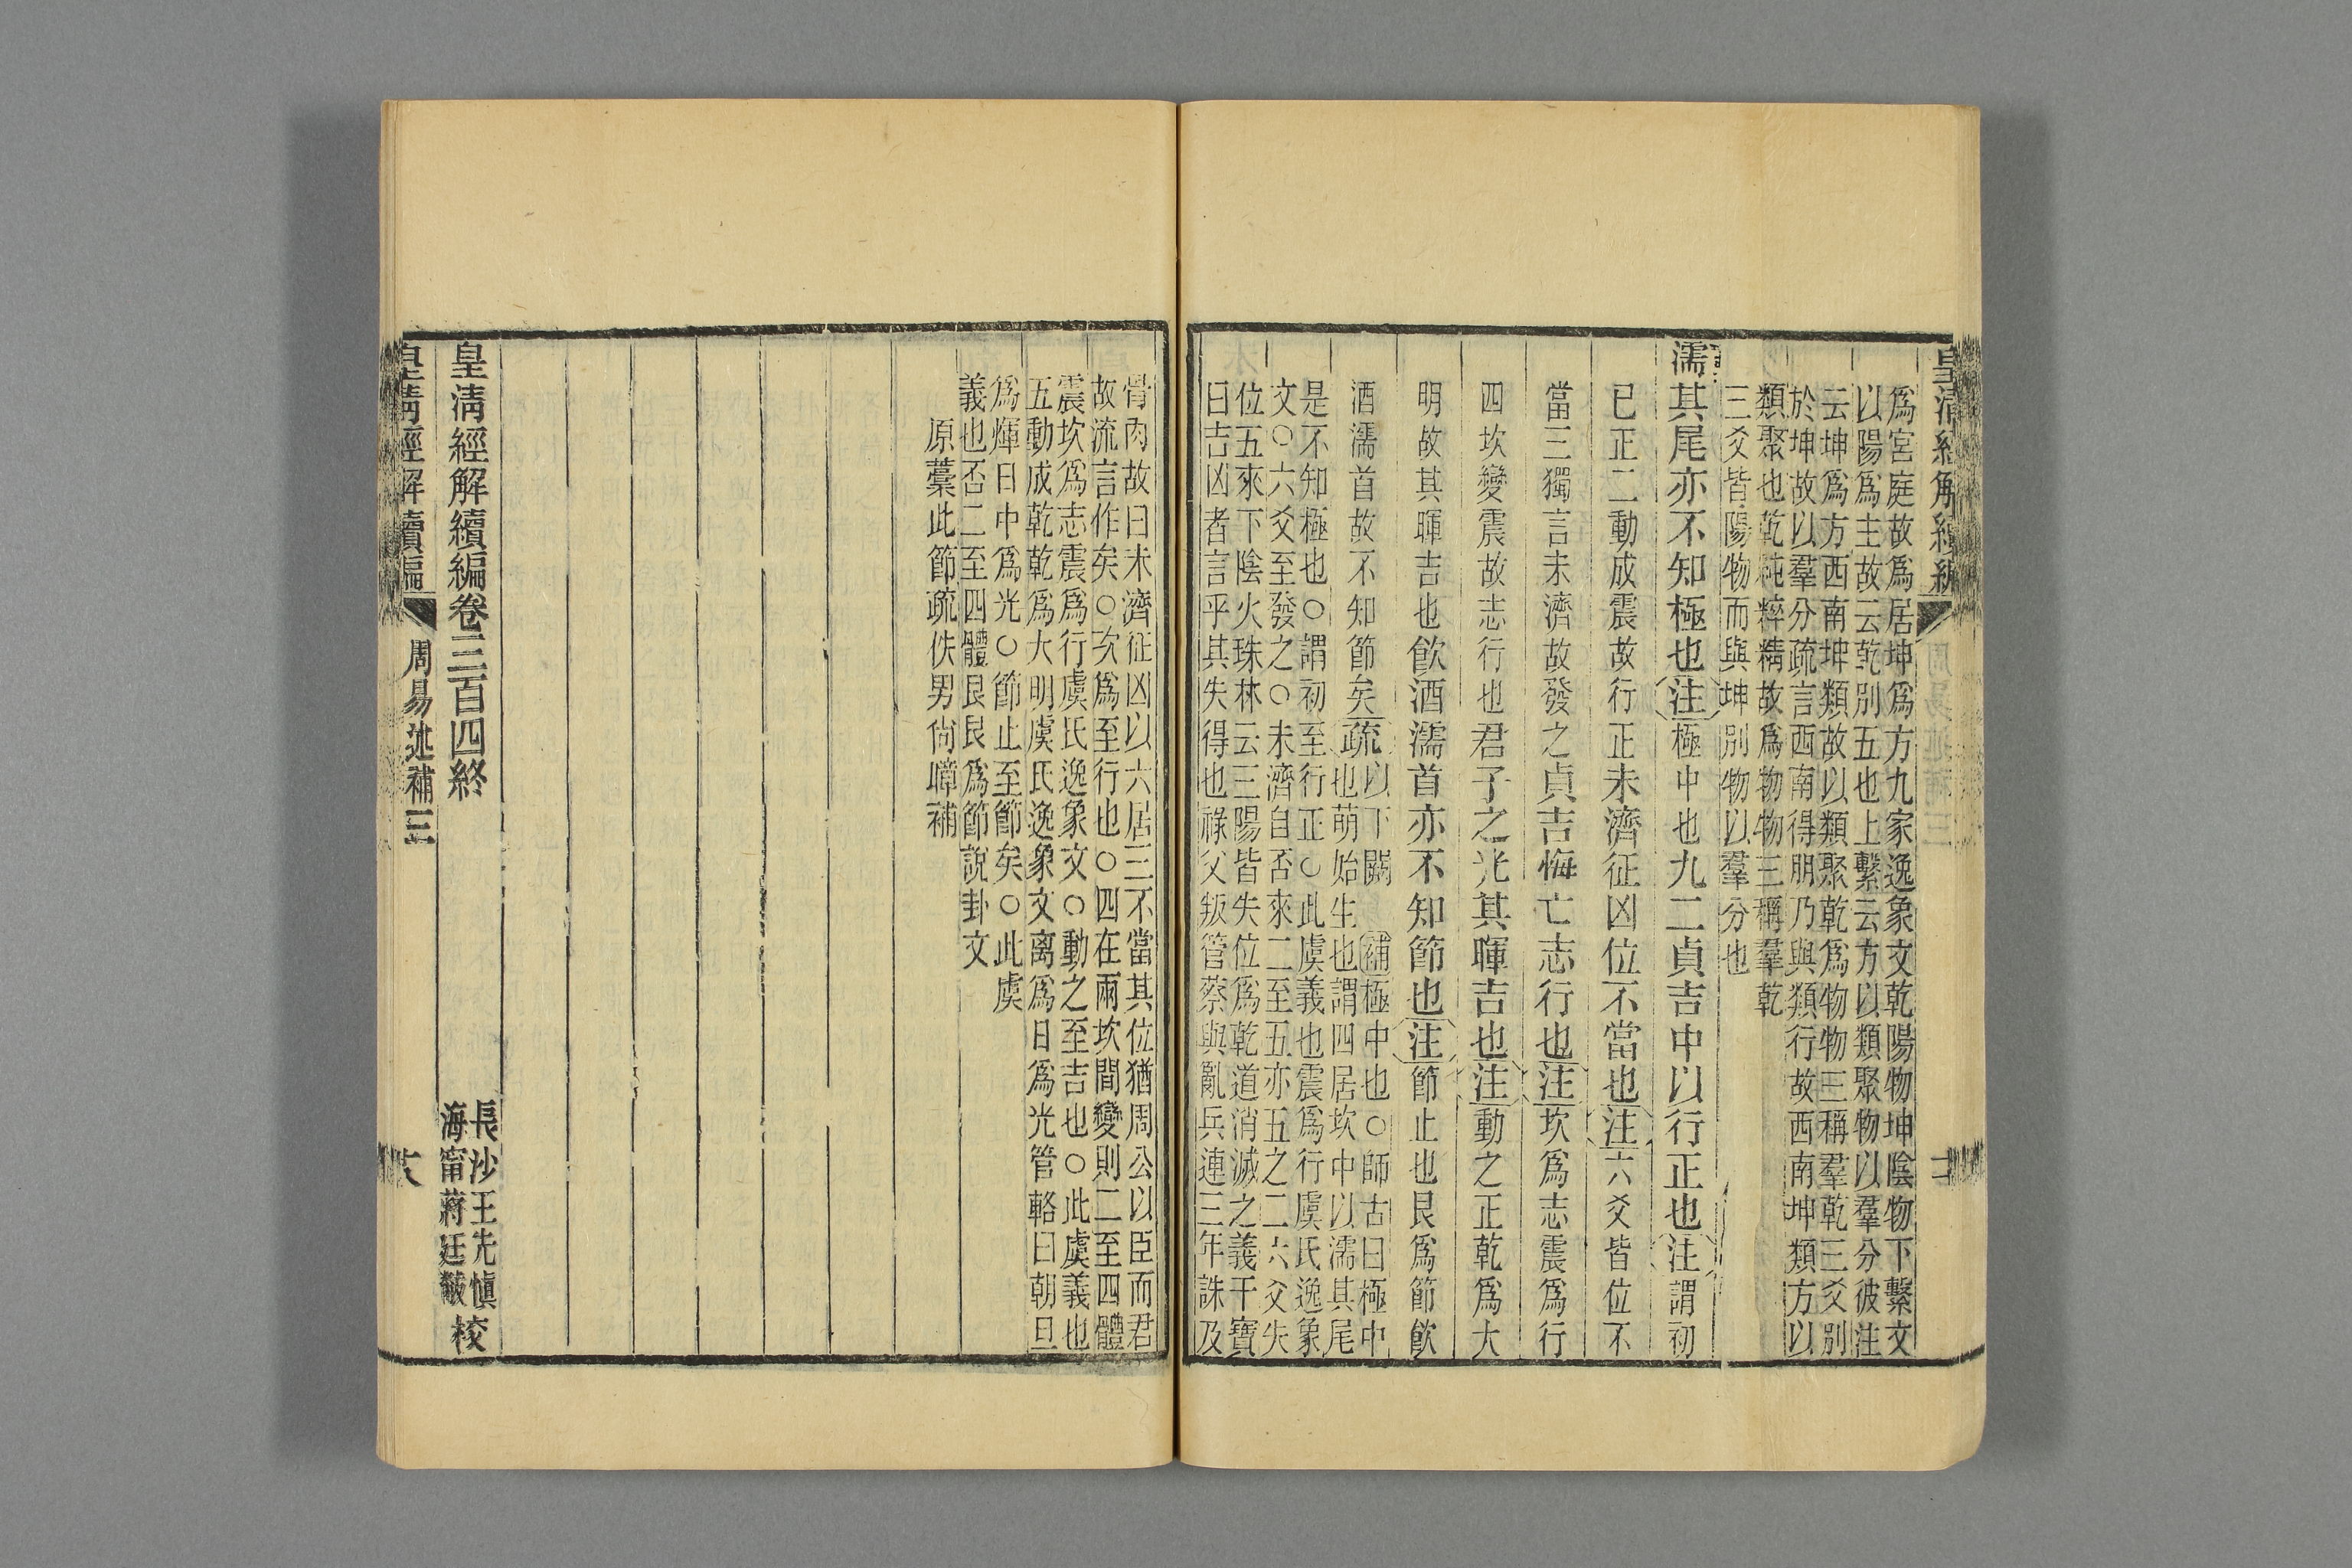 皇清經解續編
爲宮庭故爲居坤爲方九家逸象文乾陽物坤陰物下繫文
以陽爲主故云乾別五也上繫云方以類聚物以羣分彼注
云坤爲方西南坤類故以類聚乾爲物物三稱羣乾三爻別
於坤故以羣分疏言西南得朋乃與類行故西南坤類方以
類聚也乾純粹精故爲物物三稱羣乾
三爻皆陽物而與坤別物以羣分也
濡其尾亦不知極也注極中也九二貞吉中以行正也注謂初
已正二動成震故行正未濟征凶位不當也注六爻皆位不
當三獨言未濟故發之貞吉悔亡志行也注坎爲志震爲行
四坎變震故志行也君子之光其暉吉也注動之正乾爲大
明故其暉吉也飮酒濡首亦不知節也注節止也艮爲節飮
酒濡首故不知節矣疏以下闕補極中也○師古曰極中
也萌始生也謂四居坎中以濡其尾
是不知極也○謂初至行正○此虞義也震爲行虞氏逸象
文○六爻至發之○未濟自否來二至五亦五之二六爻失
位五來下陰火珠林云三陽皆失位爲乾道消滅之義干寶
曰吉凶者言乎其失得也祿父叛管蔡與亂兵連三年誅及
骨肉故曰未濟征凶以六居三不當其位猶周公以臣而君
故流言作矣○次爲至行也○四在兩坎間變則二至四體
震坎爲志震爲行虞氏逸象文○動之至吉也○此虞義也
五動成乾乾爲大明虞氏逸象文离爲日爲光管輅曰朝旦
爲煇日中爲光○節止至節矣○此虞
義也否二至四體艮艮爲節說卦文
原藁此節疏佚男尙嶂補
皇清經解續編卷三百四終
長沙王先愼
海甯蔣廷黻
校
皇清經解續編
周易述補三